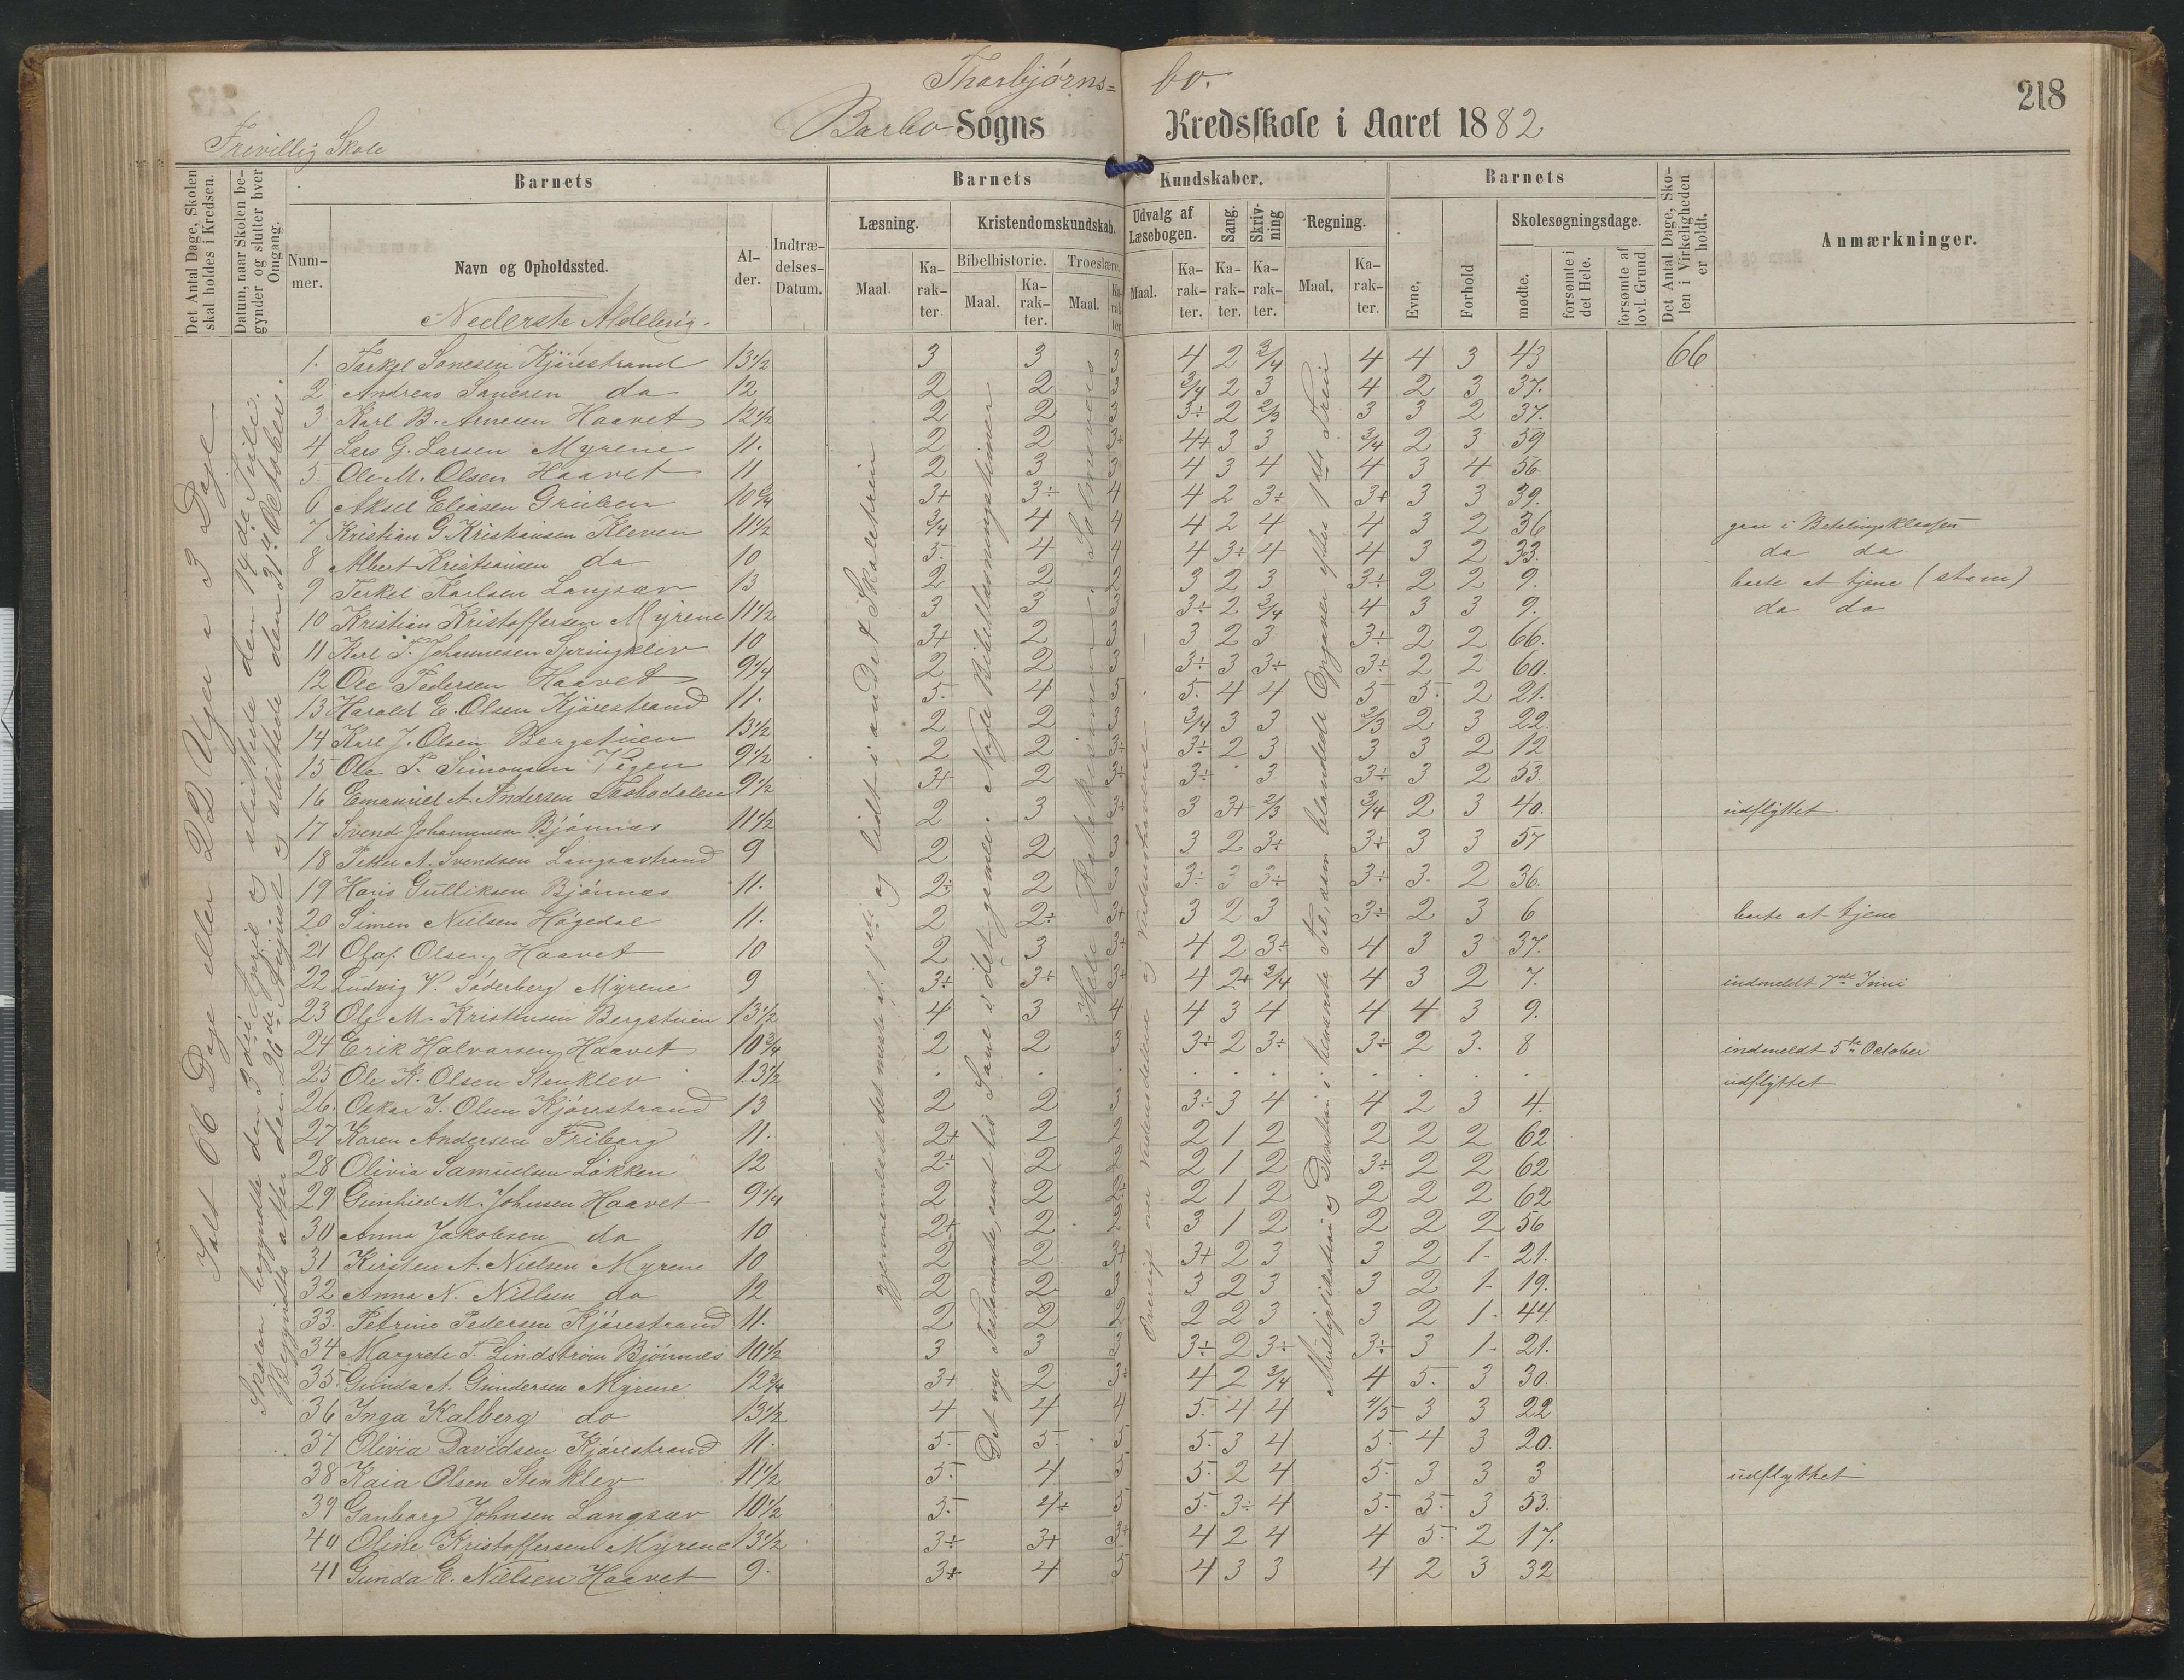 218
Thorbjörns= bo.
Barbo Sogns Kredsskole i Aaret 1882
Frivillig Skole
Det Antal Dage, Skolen skal holdes i Kredsen.
Datum, naar Skolen begynder og slutter hver Omgang.
Barnets
Nummer.
Navn og Opholdssted.
Alder.
Indtrædelses-Datum.
Barnets Kundskaber.
Læsning.
Maal.
Karakter.
Kristendomskundskab.
Bibelhistorie.
Maal.
Karakter.
Troeslære.
Maal.
Karakter.
Udvalg af Læsebogen.
Maal.
Karakter.
Sang.
Karakter.
Skrivning
Karakter.
Regning.
Maal.
Karakter.
Barnets
Evne.
Forhold
Skolesøgningsdage.
mødte.
forsømte i det Hele.
forsømte af lovl. Grund
Det Antal Dage, Skolen i Virkeligheden er holdt.
Anmærkninger.
Nederste Afdeling.
Ialt 66 Dage eller 22 Uger a 3 Dage
Skolen begyndte den 3die April og sluttede den 14de Juli.
Begyndte atter den 26de August og sluttede den 31te October.
gjennemlæst det meste af 1ste og lidt i andet Skoletrin
Det nye Testamente, samt lid Save i det gamle. Nogle Bibellæsningstimer
Hele Katekismen. Salmevers
Oversigt over Verdensdelene og Verdenshavene.
Multiplikation og Division i benævnte Tal, samt blandede Opgaver efter 1ste Trin
1. Tarkel Sanesen Kjörestrand 13 1/2 3 3 3 4 2 3/4 4 4 3 43 66
2 Andreas Sanesen do 12 2 2 3 3/4 2 3 4 2 3 37.
3 Karl B. Arnesen Haavet 12 1/2 2 2 3 3÷ 2 2/3 3 3 2 37.
4 Lars G. Larsen Myrene 11. 2 2 3÷ 4+ 3 3 3/4 2 3 59
5 Ole M. Olsen Haavet 11 2 3 3 4 3 4 4 3 4 56
6 Aksel Eliasen Gruben 10 3/4 3+ 3÷ 4 4 2 3÷ 3+ 3 3 39.
7 Kristian G. Kristiansen Kleven 11 1/2 3/4 4 4 4 2 4 4 3 2 36 gaar i Betalingsklassen
8 Albert Kristiansen do 10 5. 4 4 4 3÷ 4 4 3 2 33. do do
9 Terkel Karlsen Langsæv 13 2 2 2 3 2 3 3÷ 2 2 9. borte at tjene (stam)
10 Kristian Kristoffersen Myrene 11 1/2 3 3 3 3÷ 2 3/4 4 3 3 9. do do
11 Karl T. Johannesen Springklev 10 3+ 2 3 3 2 3 3÷ 2 2 66.
12 Ole Pedersen Haavet 9 1/4 2 2 3 3÷ 3 3÷ 3÷ 2 2 60.
13 Harald E. Olsen Kjörestrand 11. 5. 4 5 5. 4 4 5 5. 2 21.
14 Karl J. Olsen Bergstuen 13 1/2 2 2 3 3/4 3 3 2/3 2 3 22.
15 Ole T. Simonsen Vigen 9 1/2 2 2 3÷ 3÷ 2 3 3 3 2 12
16 Emanuel A. Andersen 9 1/2 3+ 2 3÷ 3÷ . 3 3÷ 3 2 53.
17 Svend Johannesen Bjönnæs 11 1/2 2 3 3÷ 3 3+ 2/3 3/4 2 3 40. udflyttet
18 Petter A. Svendsen Langsævtrand 9 2 2 3 3 2 3÷ 3÷ 3 3 57
19 Hans Gulliksen Bjönnæs 11. 2÷ 2 3 3÷ 3 3÷ 3÷ 3. 2 36.
20 Simen Nielsen Högedal 11. 2 2÷ 3+ 3 2 3 3÷ 2 3 6 borte at tjene
21 Olaf Olsen Haavet 10 2 3 3÷ 4 2 3÷ 4 3 3 37.
22 Ludvig V. Söderberg Myrene 9 3÷ 3+ 3÷ 4 2+ 3/4 4 3 2 7. indmeldt 7de Juni
23 Ole M. Kristensen Bergstuen 13 1/2 4 3 4 4 3 4 4 4 3 9.
24 Erik Halvorsen Haavet 10 3/4 2 2 3 3÷ 2 3÷ 3÷ 2 3. 8 indmeldt 5te October
25 Ole K. Olsen Stenklev 13 1/2 . . . . . . . . . . udflyttet
26. Oskar J. Olsen Kjörestrand 13 2 2 3 3÷ 3 4 4 2 3 4.
27 Karen Andersen Friborg 11. 2+ 2 2 2 1 2 2 2 2 62
28 Olivia Samuelsen Løkken 12 2÷ 2 2 2 1 2 3÷ 2 2 62
29 Gunhild M. Johnsen Haavet 9 1/4 2 2 2÷ 2 1 2 2 2 2 62
30 Anna Jakobsen do 10 2+ 2 2 3 1 2 2 2 2 56
31 Kirsten A. Nielsen Myrene 10 2 2 3+ 3+ 2 3 3 2 1- 21.
32 Anna N. Nielsen do 12 2 2 3 3 2 3 3 2 1- 19.
33. Petrine Pedersen Kjörestrand 11. 2 2 2 2 2 3 3 2 1- 44.
34 Margrete T. Lindström Bjönnæs 10 1/2 3 3 3 3÷ 2 3÷ 3÷ 3 1- 21.
35. Gunda A. Gundersen Myrene 12 3/4 3+ 2 3÷ 4 2 3/4 4 5. 3 30.
36 Inga Kalberg do 13 1/2 4 4 4 5. 4 4 4/5 3 3 22
37 Olivia Davidsen Kjörestrand 11. 5. 5. 5 5. 3 4 5. 4 3 20.
38 Kaia Olsen Stenklev 11 1/2 5. 4 5 5. 2 4 5. 3 3 3 udflyttet
39 Ganborg Johnsen Langsæv 10 1/2 5. 4÷ 5 5. 3÷ 4 5. 5. 3 53.
40 Oline Kristoffersen Myrene 13 1/2 3÷ 3+ 3+ 4 2 4 4 5. 2 17.
41 Gunda E. Nielsen Haavet 9. 3÷ 4 5 4 3 3 4 2 3 32